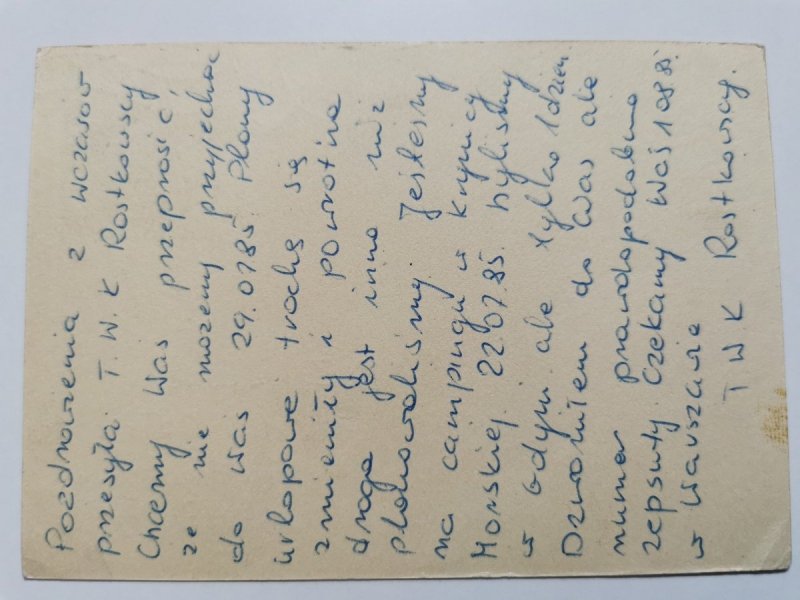 Pozdrowienia z wczasów
przesyła T. W. K Rostkowscy
Chcemy Was przeprosić,
że nie możemy przyjechać
do Was 29.07.85 Plany
urlopowe trochę się
zmieniły i powrotna
droga jest inna niż
planowaliśmy Jesteśmy
na campingu w Krynicy
Morskiej. 22.07.85. byliśmy
w Gdyni ale tylko 1 dzień.
Dzwoniłem do Was ale
numer prawdopodobnie
zepsuty. Czekamy Was 1 08 85.
w Warszawie
T W K Rostkowscy.